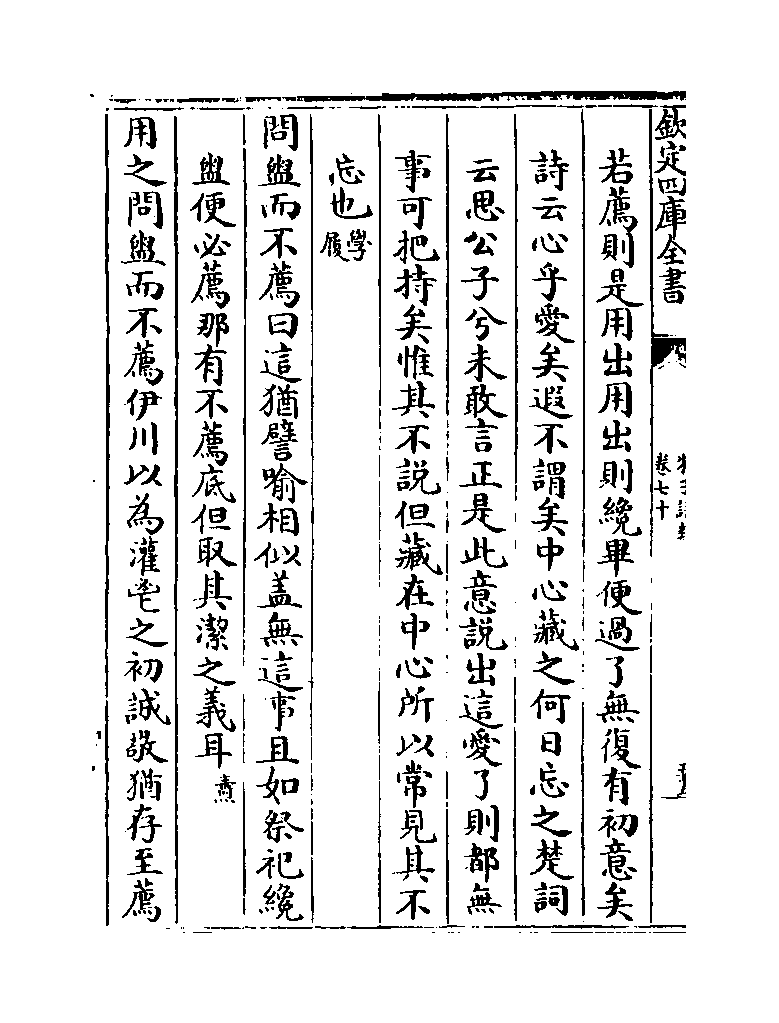 欽定四庫全書
卷七十
若薦則是用出用出則纔畢便過了無復有初意矣
詩云心乎愛矣遐不謂矣中心藏之何日忘之楚詞
云思公子兮未敢言正是此意説出這愛了則都無
事可把持矣惟其不説但藏在中心所以常見其不
忘也學履
問盥而不薦曰這猶譬喻相似盖無這事且如祭祀纔
盥便必薦那有不薦底但取其潔之義耳燾
用之問盥而不薦伊川以為灌鬯之初誠敬猶存至薦